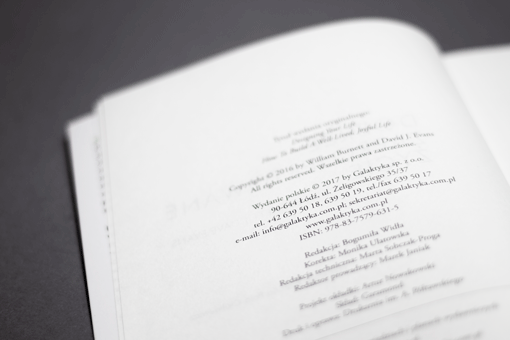 Tytuł wydania oryginalnego:
Designing Your Life
How To Build A Well-Lived, Joyful Life
Copyright © 2016 by William Burnett and David J. Evans
All rights reserved. Wszelkie prawa zastrzeżone.
Wydanie polskie © 2017 by Galaktyka sp. z o.o.
90-644 Łódź, ul. Żeligowskiego 35/37
tel. +42 639 50 18, 639 50 19, tel./fax 639 50 17
e-mail: info@galaktyka.com.pl; sekretariat@galaktyka.com.pl
www.galaktyka.com.pl
ISBN: 978-83-7579-631-5
Redakcja: Bogumiła Widła
Korekta: Monika Ulanowska
Redakcja techniczna: Marta Sobczak-Proga
Redaktor prowadzący: Marek Janiak
Projekt okładki: Artur Nowakowski
Skład: Garamond
Druk i oprawa: Drukarnia im. A. Półtawskiego